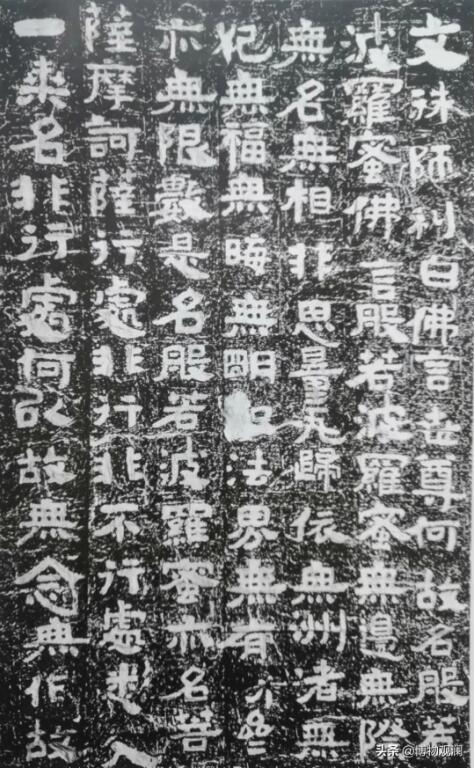 文殊師利白佛言世尊何故名般若
波羅蜜佛言般若波羅蜜無邊無際
無名無相非思量无歸依無洲渚無
犯無福無晦無明如法界無有分齊
亦無限數是名般若波羅蜜亦名菩
薩摩訶薩行處非行非不行處悉入
一乘名非行處何以故無念無作故
头条 @博物观澜